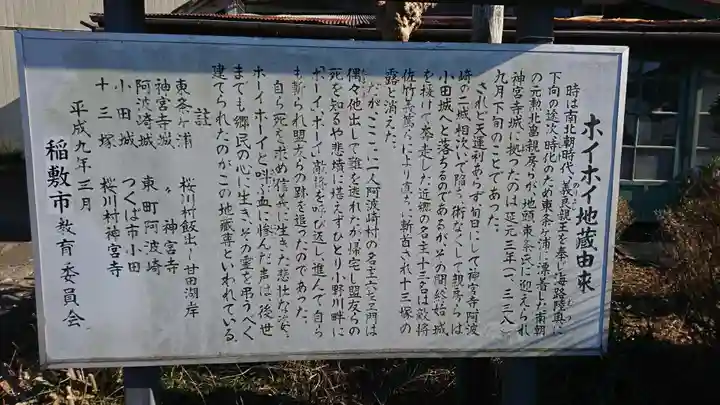 ホイホイ地蔵由来
時は南北朝時代、義良親王を奉じ海路陸奥に
下向の途次時化のため東条ヶ浦に漂着した南朝
の元勲北畠親房らが地頭東条氏に迎えられ
神宮寺城に拠ったのは延元三年(一、三三八)
九月下旬のことであった。
されど天運利あらず旬日にして神宮寺阿波
崎の二城相次いで陥う術なくして親房らは
小田城へと落ちるのであるがその間終始城
を援けて奔走した近郷の名主十三名は敵将
佐竹義篤らにより直ちに斬首され十三塚の
露と消えた。
だがここに一人阿波崎村の名主六左ェ門は
偶々他出して難を逃れたが帰宅し盟友らの
死を知るや悲憤に堪えずひとり小野川畔に
ホーイホーイと敵勢を呼び返し進んで自ら
も斬られ盟友らの跡を追ったのであった。
自ら死を求め信義に生きた悲壮な姿、
ホーイホーイと叫ぶ血に惨んだ声は、後世
までも郷民の心に生き、その霊を弔うべく
建てられたのがこの地蔵尊といわれている。
註
東条ヶ浦 桜川村飯出〜甘田湖岸
神宮寺城 〃 神宮寺
阿波崎城 東町阿波崎
小田城 つくば市小田
十三塚 桜川村神宮寺
平成九年三月
稲敷市教育委員会